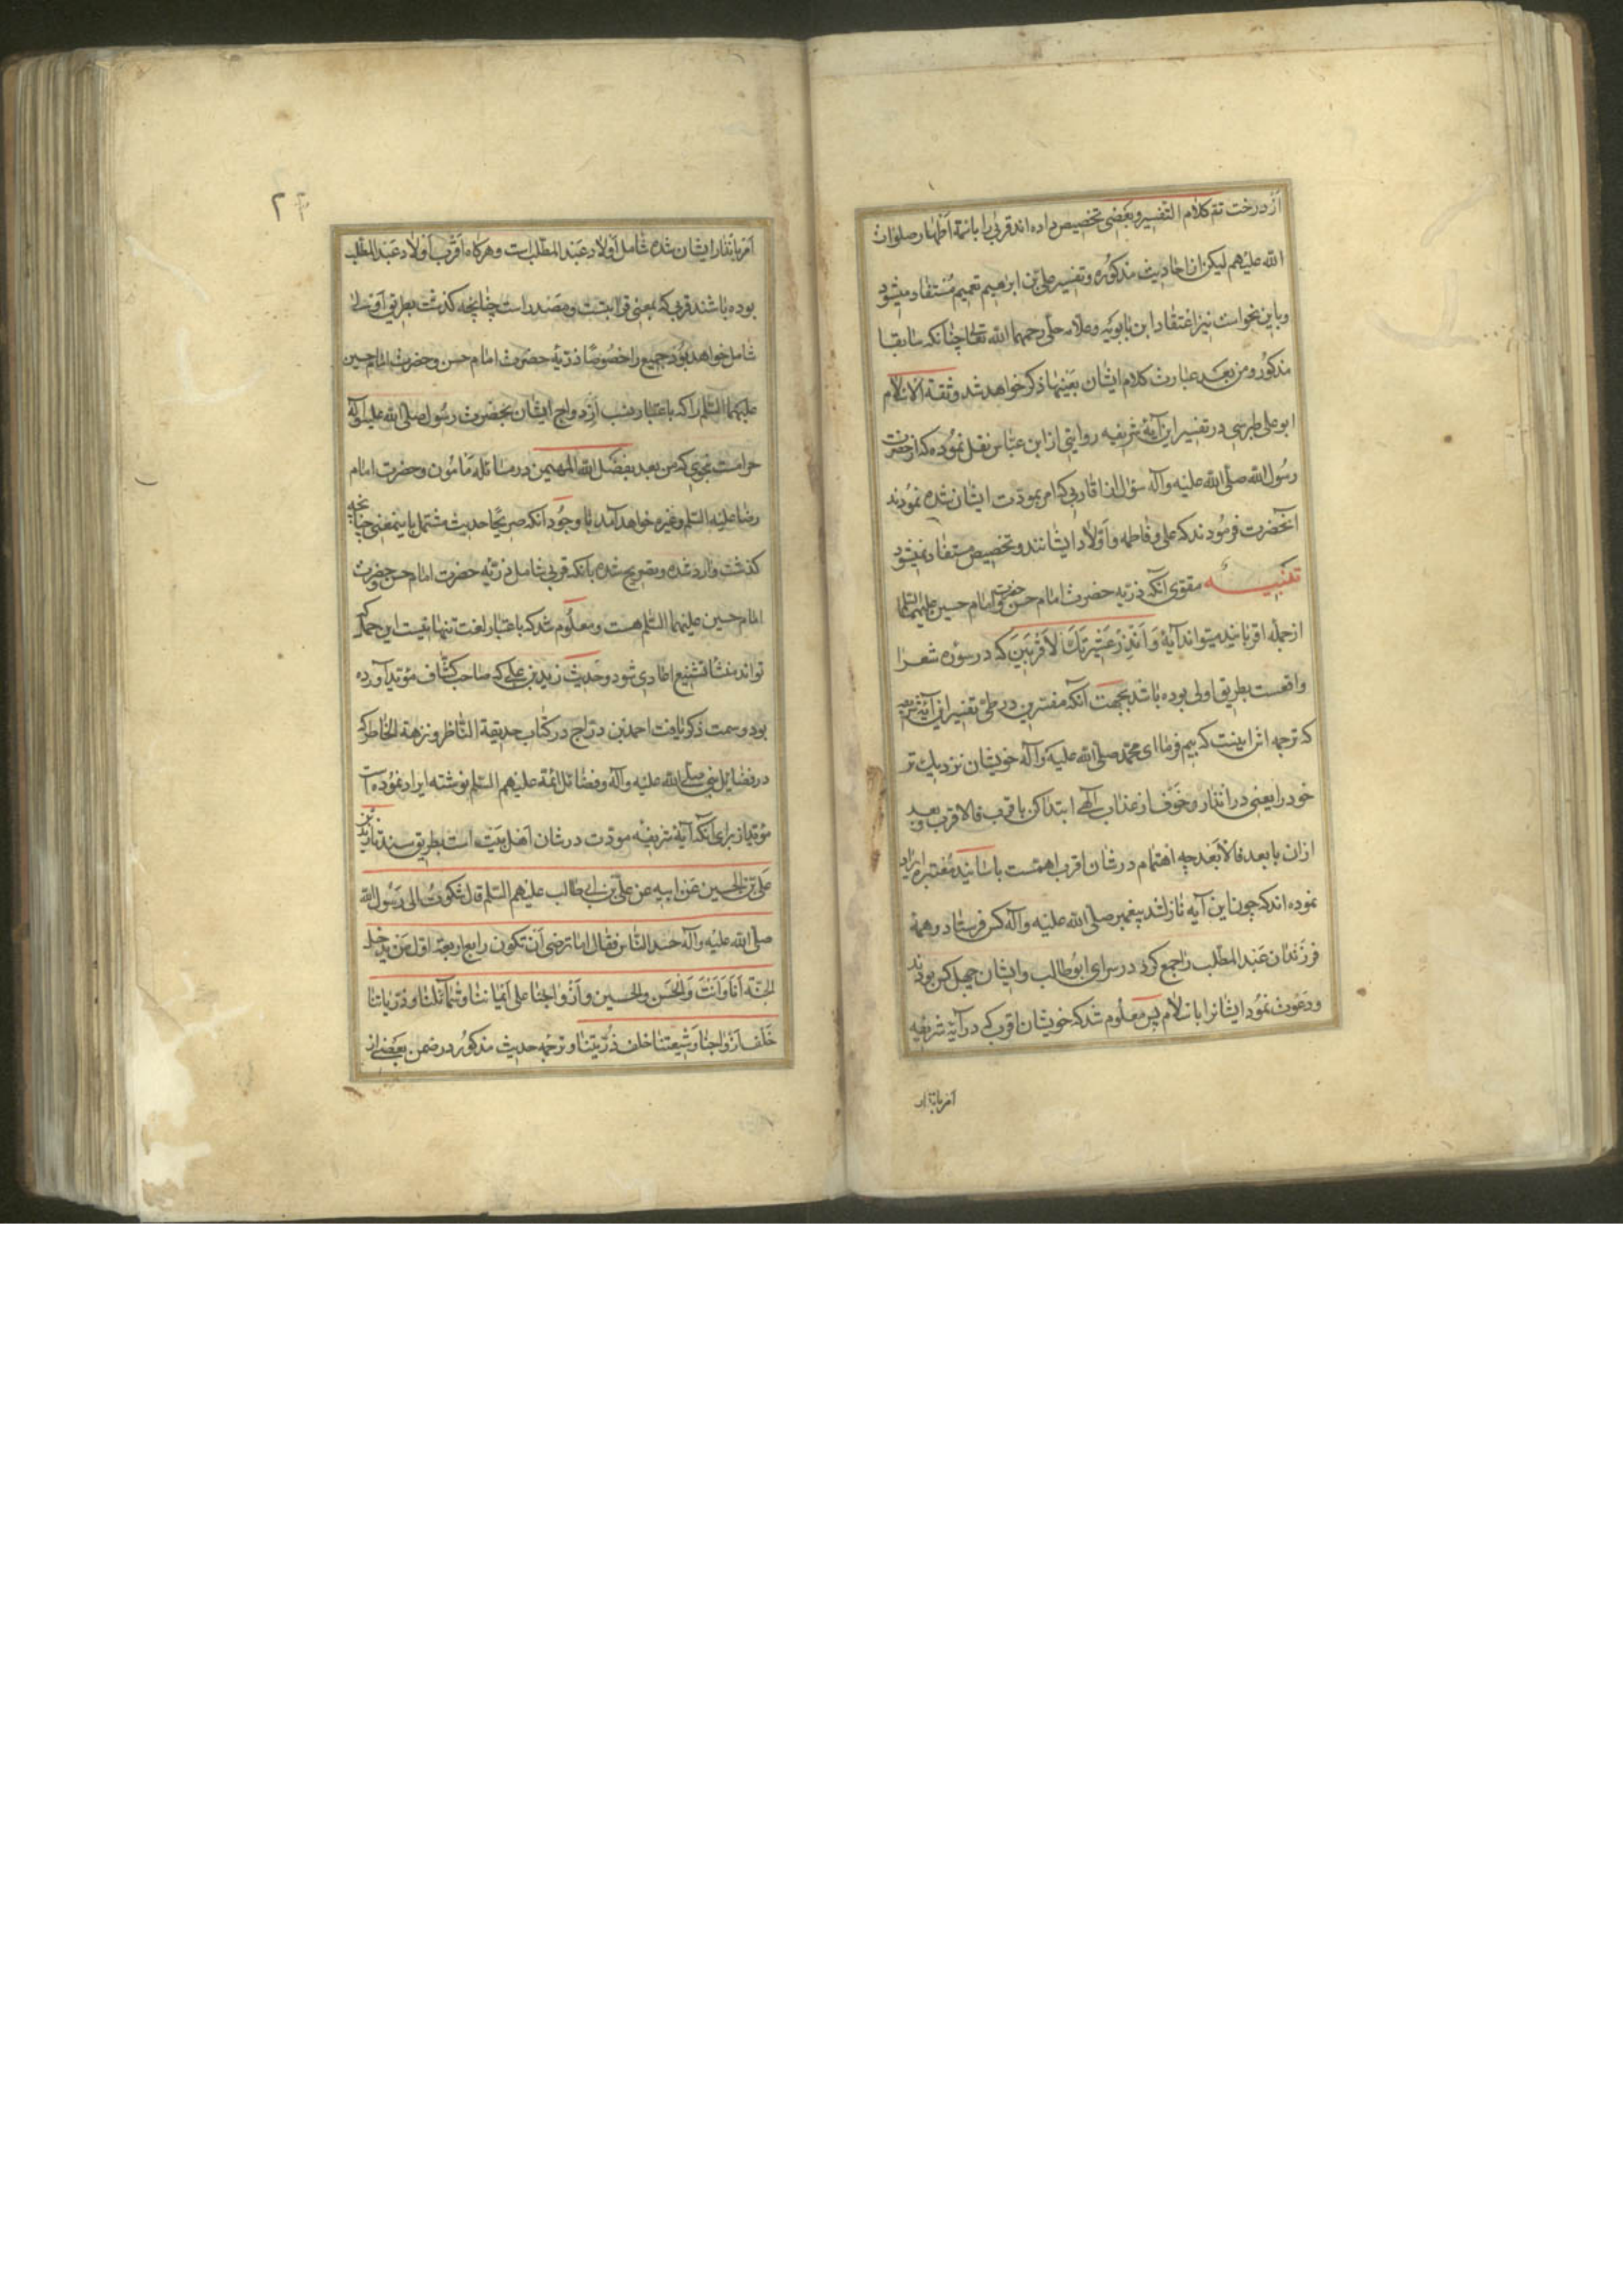 از درخت تم کلام التفسیر و بعضی تخصیص داده اند قربی را بائمهٔ اطهار صلوات
الله علیهم لیکن از احادیث مذکوره و تفسیر علی بن ابرهیم تعمیم مستفاد میشود
و باین نحو است نیز اعتقاد ابن بابویه و علامه حلی رحمهما الله تعالی چنانکه سابقا
مذکور و من بعد عبارت کلام ایشان بعینها ذکر خواهد شد و ثقة الاسلام
ابو علی طبرسی در تفسیر این آیهٔ شریفه روایتی از ابن عباس نقل نموده که از حضرت
رسول الله صلی الله علیه وآله سؤال از اقاربی که امر بمودت ایشان شده نمودند
انحضرت فرمودند که علی و فاطمه و اولاد ایشانند و تخصیص مستفاد نمیشود
تنبیه مقوی آنکه ذریه حضرت امام حسن و حضرت امام حسین علیهما السلم
از جمله اقربایند میتواند آیهٔ وَاَنْذِرْ عَشِیرَتَكَ الاَقْرَبِینَ که در سورهٔ شعرا
واقعست بطریق اولی بوده باشد بجهت آنکه مفسرین در طی تفسیر این آیهٔ شریفه
که ترجمه اش اینست که بیم فرما ای محمد صلی الله علیه وآله خویشان نزدیك تر
خود را یعنی در انذار و خوف از عذاب آلهی ابتدا کن باقرب فالاقرب و بعد
ازان بابعد فالابعد چه اهتمام در شان اقرب اهمست باسانید معتبره ایراد
نموده اند که چون این آیه نازل شد پیغمبر صلی الله علیه وآله کس فرستاد و همهٔ
فرزندان عبد المطلب را جمع کرد در سرای ابو طالب و ایشان چهل کس بودند
و دعوت نمود ایشانرا باسلام پس معلوم شد که خویشان اقرب که در آیهٔ شریفه
امر بانذار
۲۴
امر بانذار ایشان شده شامل اولاد عبد المطلب است و هرکاه اقرب اولاد عبد المطلب
بوده باشند قربی که بمعنی قرابتست و مصدر است چنانچه کذشت بطریق اولی
شامل خواهد بود جمیع را خصوصا ذریهٔ حضرت امام حسن و حضرت امام حسین
علیهما السلم را که باعتبار نسب ازدواج ایشان بحضرت رسول صلی الله علیه وآله
حرامست بنحوی که من بعد بفضل الله المهیمن در مسائلهٔ مامون و حضرت امام
رضا علیه السلم و غیره خواهد آمد با وجود آنکه صریحا حدیث مشتمل باینمعنی چنانچه
کذشت وارد شده و تصریح شده بانکه قربی شامل ذریه حضرت امام حسن و حضرت
امام حسین علیهما السلم هست و معلوم شد که باعتبار لغت تنها نیست این حمل که
تواند منشا تشنیع اعادی شود و حدیث زید بن علی که صاحب کشاف مؤید آورده
بود و سمت ذکر یافت احمد بن دراج در کتاب حدیقة الناظر و نزهة الخاطر که
در فضایل نبی صلی الله علیه وآله و فضائل ائمة علیهم السلم نوشته ایراد نموده است
مؤید از برای آنکه آیهٔ شریفه مودت در شان اهل بیت است بطریق سند تا زید بن
علی بن الحسین عن ابیه عن علی بن ابی طالب علیهم السلم قال شکوت الی رسول الله
صلی الله علیه وآله حسد الناس فقال اما ترضی ان تکون رابع اربعة اول من یدخل
الجنة انا وانت والحسن والحسین وازواجنا علی ایماننا وشمائلنا وذریاتنا
خلف ازواجنا وشیعتنا خلف ذریتنا و ترجمه حدیث مذکور در ضمن بعضی از